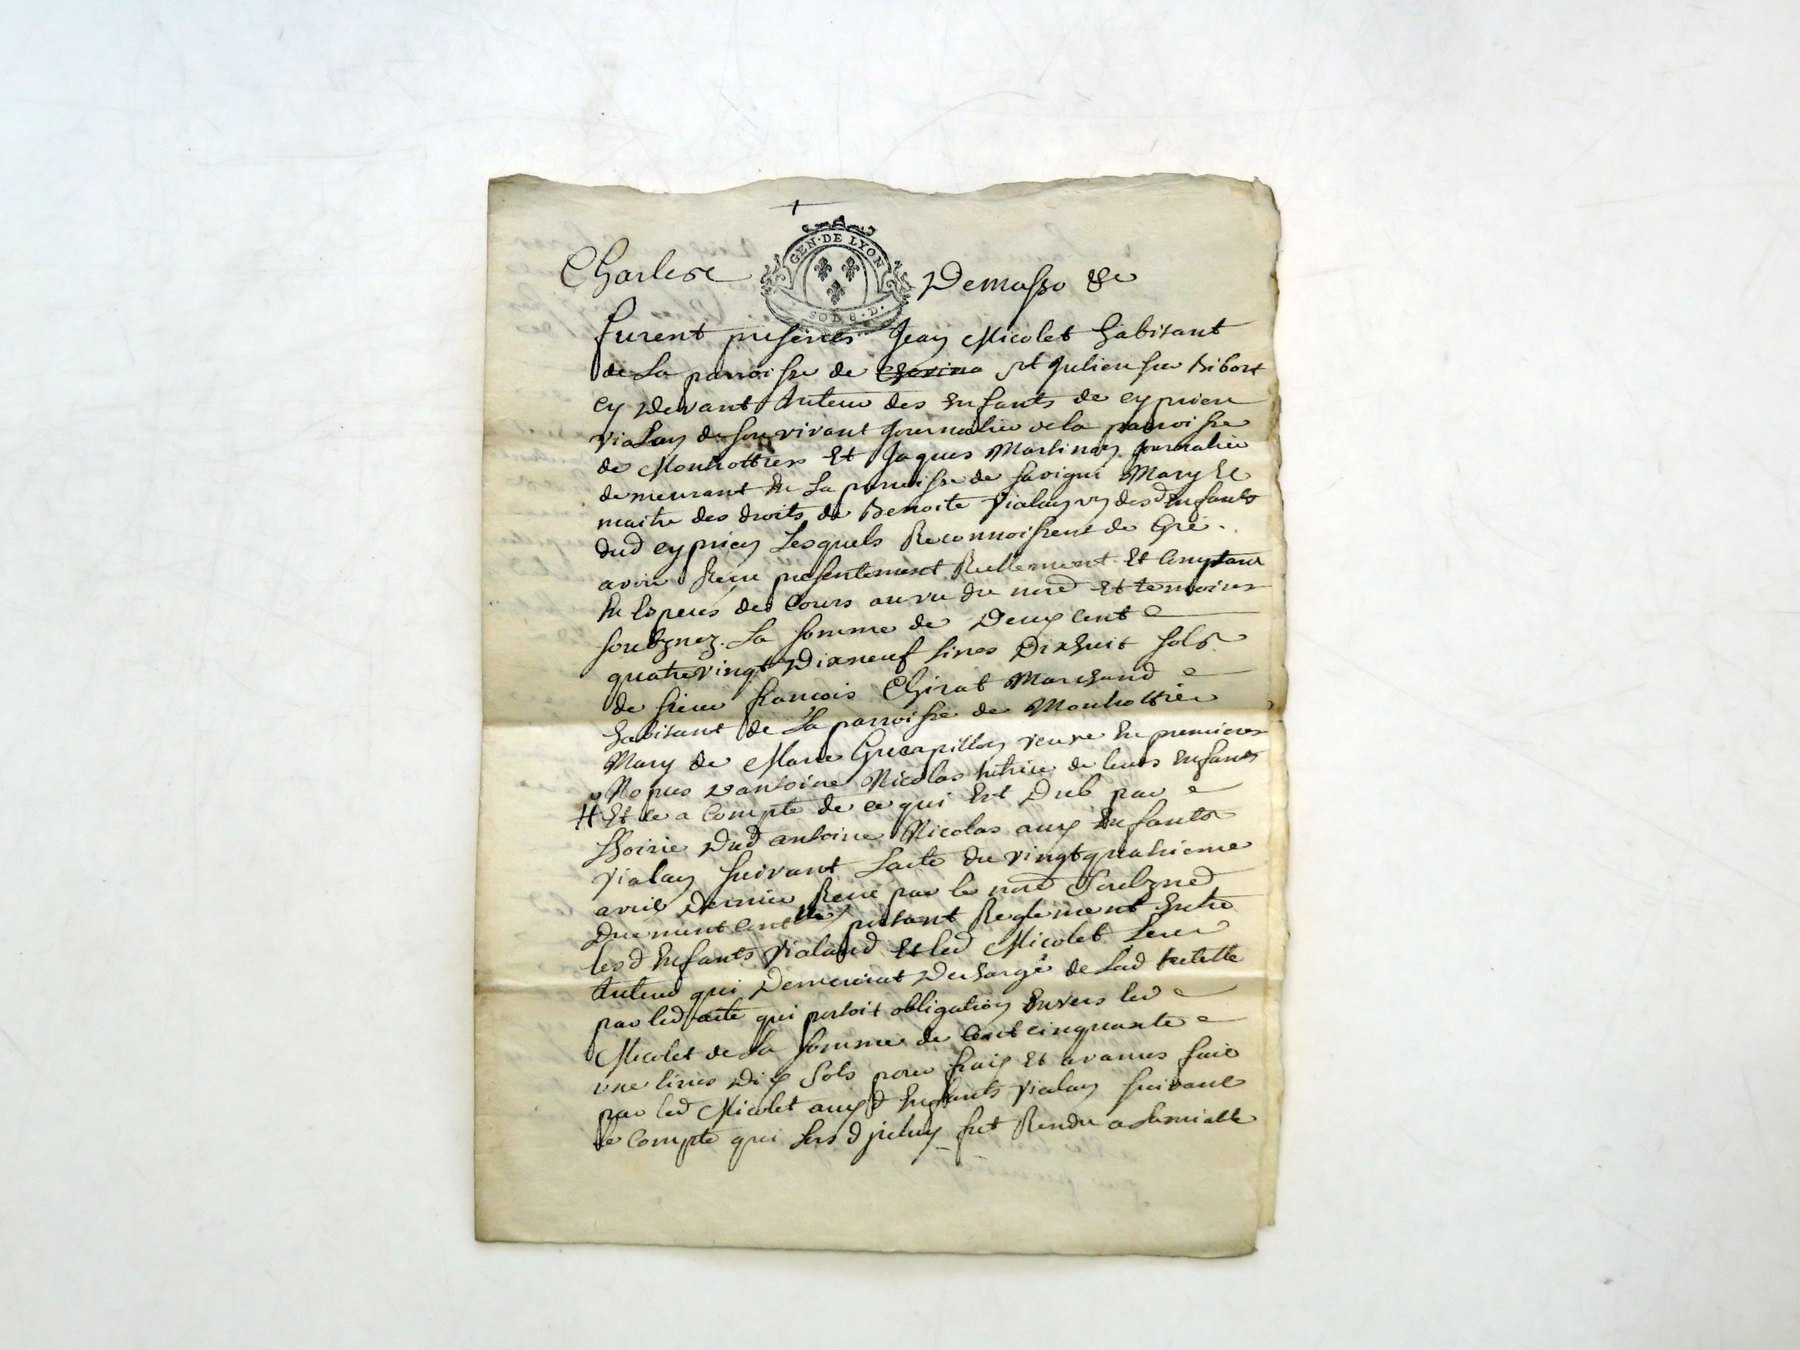 GEN·DE LYON
Charlese Demasso &c
SOLS·D·
furent presents Jean Micolet habitant
de La parroisse de St Julien sur Bibost
cy devant tuteur des Enfants de cyprien
vialay de son vivant Journalier de la parroisse
de Montrottier Et Jaques Martinay Journalier
demeurant En La parroisse de savigni Mary Et
maitre des droits de Benoite vialay un desd Enfants
dud cyprien Lesquels Reconnoissent de Gré
avoir Receu presentement Reellement Et Comptant
En Especes de Cours au vu du nore Et temoins
soubznez. La somme de Deux cent
quatrevingt Dixneuf livres Dixhuit sols
de sieur francois Chirat Marchand
habitant de La parroisse de Montrottier
Mary de Marie Guerpillon veuve En premieres
Nopces d'antoine Nicolas tutrice de leurs Enfants
Et ce a Compte de ce qui Est Dub par
Lhoirie Dud antoine Nicolas aux Enfants
vialay suivant Lacte du vingtquatrieme
avril Dernier Receu par le nore Soubzned
Duement portant Reglement Entre
lesd Enfants vialay Et led Micolet Leur
tuteur qui Demeurat Decharge de Lad tutelle
par led acte qui portoit obligation Envers led
Micolet de La somme de Cent cinquante
une livres Dix Sols pour fraix Et avances faits
par led Micolet auxd Enfants vialay suivant
le Compte qui fut Rendu a Lamiable